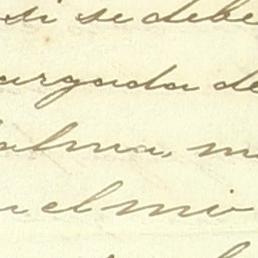 si se debe
argada de
alma, m
n el mio